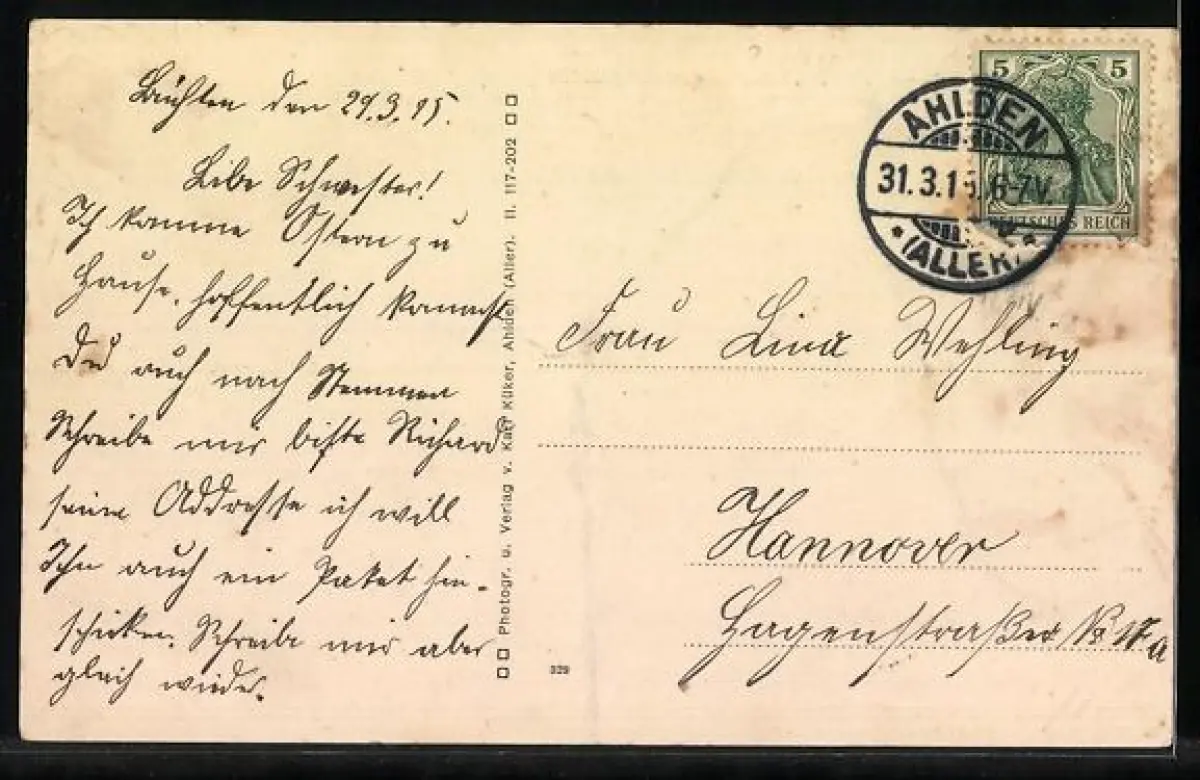 Büchten den 29.3.15.
Libe Schwester!
Ich komme Ostern zu
Hause. hoffentlich kommst
Du auch nach Stemmen
Schreibe mir bitte Richard
seine Addresse ich will
Ihn auch ein Paket hin-
schicken. Schreibe mir aber
gleich wieder.
Photogr. u. Verlag v. Karl Küker, Ahlden (Aller). II. 117-202
329
5 5
DEUTSCHES REICH
AHLDEN
31.3.15. 6-7V.
* (ALLER) *
Frau Lina Wehling
Hannover
Hagenstraßer No